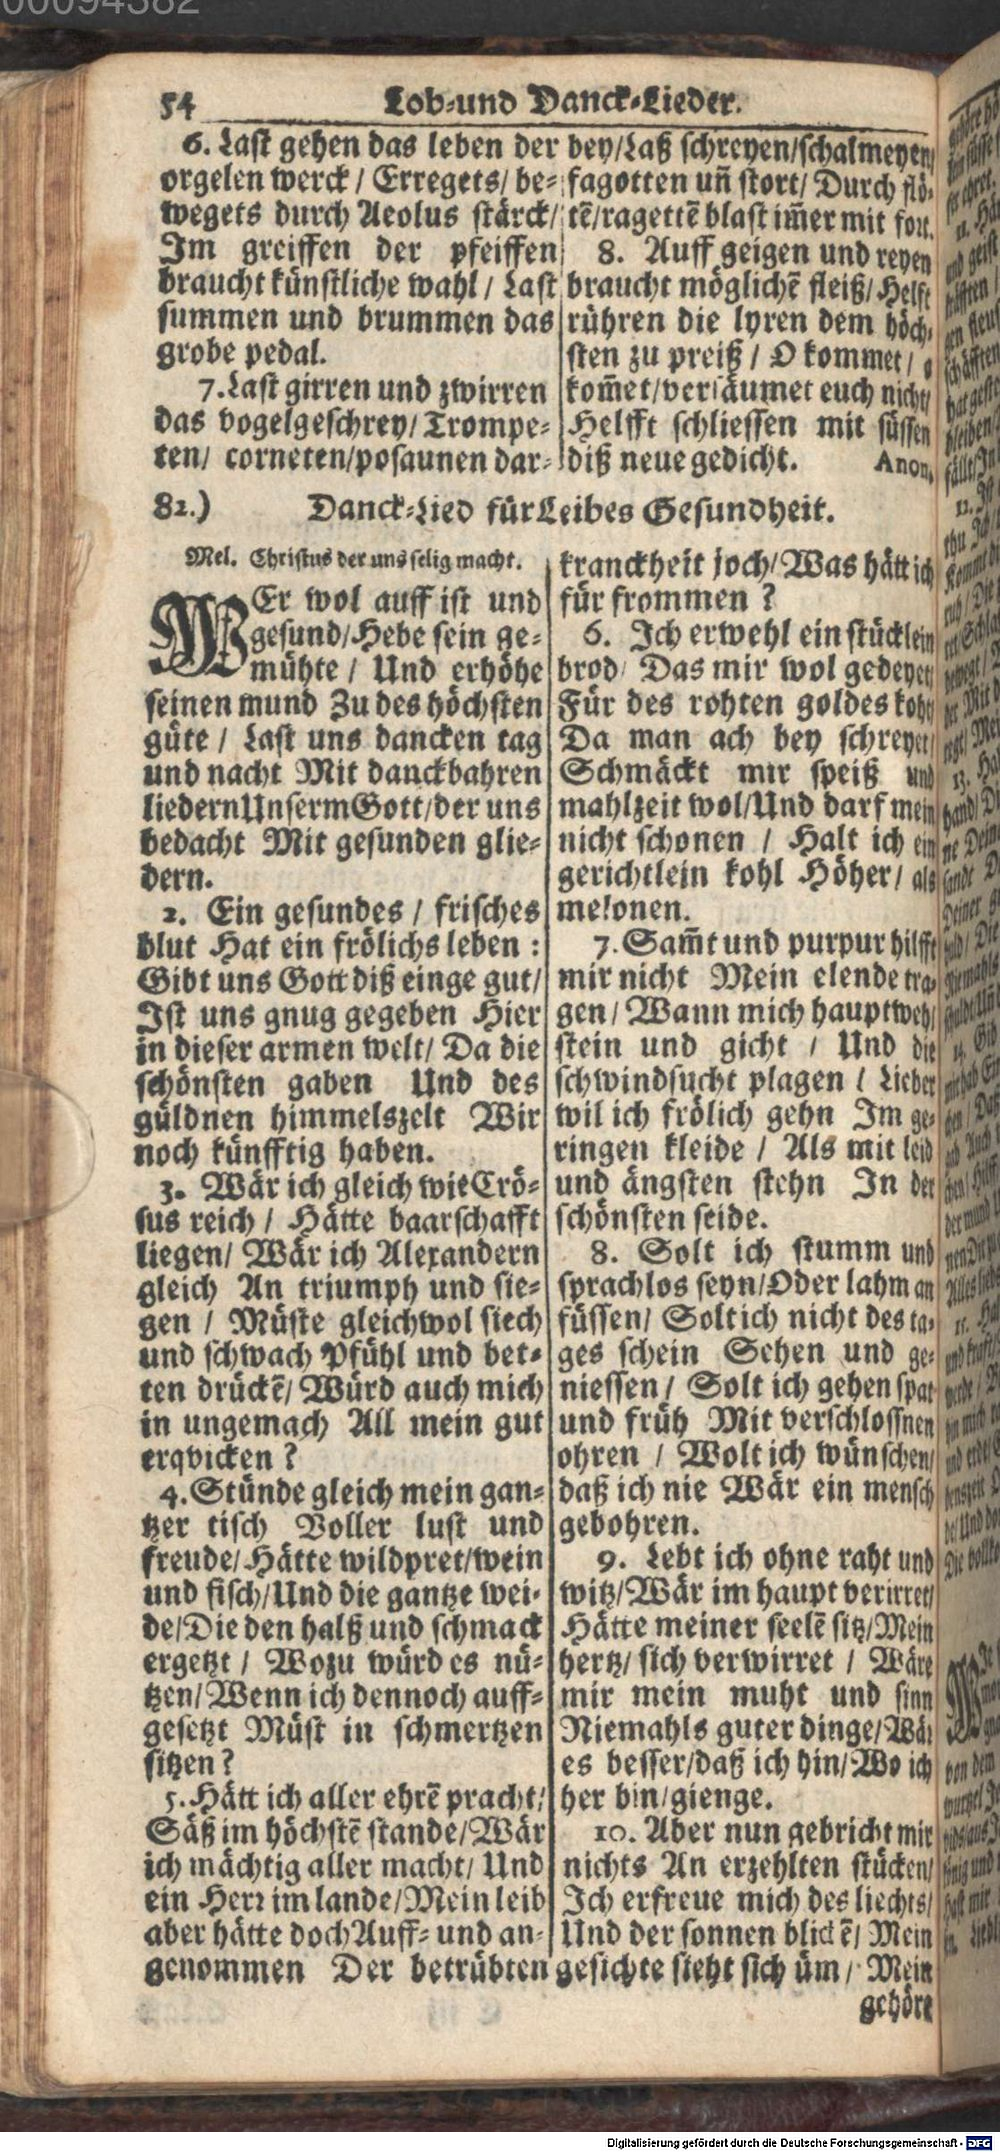 00094382
54 Lob-und Danck-Lieder.
6. Last gehen das leben der
orgelen werck / Erregets/ be-
wegets durch Aeolus stärck/
Im greiffen der pfeiffen
braucht künstliche wahl / Last
summen und brummen das
grobe pedal.
7. Last girren und zwirren
das vogelgeschrey/ Trompe-
ten/ corneten/posaunen dar-
bey/Laß schreyen/schalmeyen/
fagotten uñ stort/ Durch flö-
tẽ/ragettẽ blast im̃er mit fort.
8. Auff geigen und reyen
braucht möglichẽ fleiß/ Helft
rühren die lyren dem höch-
sten zu preiß / O kommet / o
kom̃et/versäumet euch nicht/
Helfft schliessen mit süssen
diß neue gedicht. Anon.
82.) Danck-Lied für Leibes Gesundheit.
Mel. Christus der uns selig macht.
WEr wol auff ist und
gesund/Hebe sein ge-
mühte / Und erhöhe
seinen mund Zu des höchsten
güte / Last uns dancken tag
und nacht Mit danckbahren
liedern Unserm Gott/der uns
bedacht Mit gesunden glie-
dern.
2. Ein gesundes / frisches
blut Hat ein frölichs leben :
Gibt uns Gott diß einge gut/
Ist uns gnug gegeben Hier
in dieser armen welt/ Da die
schönsten gaben Und des
güldnen himmelszelt Wir
noch künfftig haben.
3. Wär ich gleich wie Crö-
sus reich / Hätte baarschafft
liegen/ Wär ich Alexandern
gleich An triumph und sie-
gen / Müste gleichwol siech
und schwach Pfühl und bet-
ten drückẽ/ Würd auch mich
in ungemach All mein gut
erqvicken ?
4. Stünde gleich mein gan-
tzer tisch Voller lust und
freude/ Hätte wildpret/wein
und fisch/Und die gantze wei-
de/Die den halß und schmack
ergetzt / Wozu würd es nü-
tzen/ Wenn ich dennoch auff-
gesetzt Müst in schmertzen
sitzen ?
5. Hätt ich aller ehrẽ pracht/
Säß im höchstẽ stande/Wär
ich mächtig aller macht/ Und
ein Herr im lande/Mein leib
aber hätte doch Auff- und an-
genommen Der betrübten
kranckheit joch/ Was hätt ich
für frommen ?
6. Ich erwehl ein stücklein
brod/ Das mir wol gedeyet/
Für des rohten goldes koht/
Da man ach bey schreyet/
Schmäckt mir speiß und
mahlzeit wol/Und darf mein
nicht schonen / Halt ich ein
gerichtlein kohl Höher/ als
melonen.
7. Sam̃t und purpur hilfft
mir nicht Mein elende tra-
gen/ Wann mich hauptweh/
stein und gicht / Und die
schwindsucht plagen / Lieber
wil ich frölich gehn Im ge-
ringen kleide / Als mit leid
und ängsten stehn In der
schönsten seide.
8. Solt ich stumm und
sprachlos seyn/Oder lahm an
füssen/ Solt ich nicht des ta-
ges schein Sehen und ge-
niessen / Solt ich gehen spat
und früh Mit verschlossnen
ohren / Wolt ich wünschen/
daß ich nie Wär ein mensch
gebohren.
9. Lebt ich ohne raht und
witz/Wär im haupt verirret/
Hätte meiner seelẽ sitz/Mein
hertz/ sich verwirret / Wäre
mir mein muht und sinn
Niemahls guter dinge/Wär
es besser/daß ich hin/Wo ich
her bin/gienge.
10. Aber nun gebricht mir
nichts An erzehlten stücken/
Ich erfreue mich des liechts/
Und der sonnen blickẽ/ Mein
gesichte sieht sich üm / Mein
gehöre
Digitalisierung gefördert durch die Deutsche Forschungsgemeinschaft - DFG